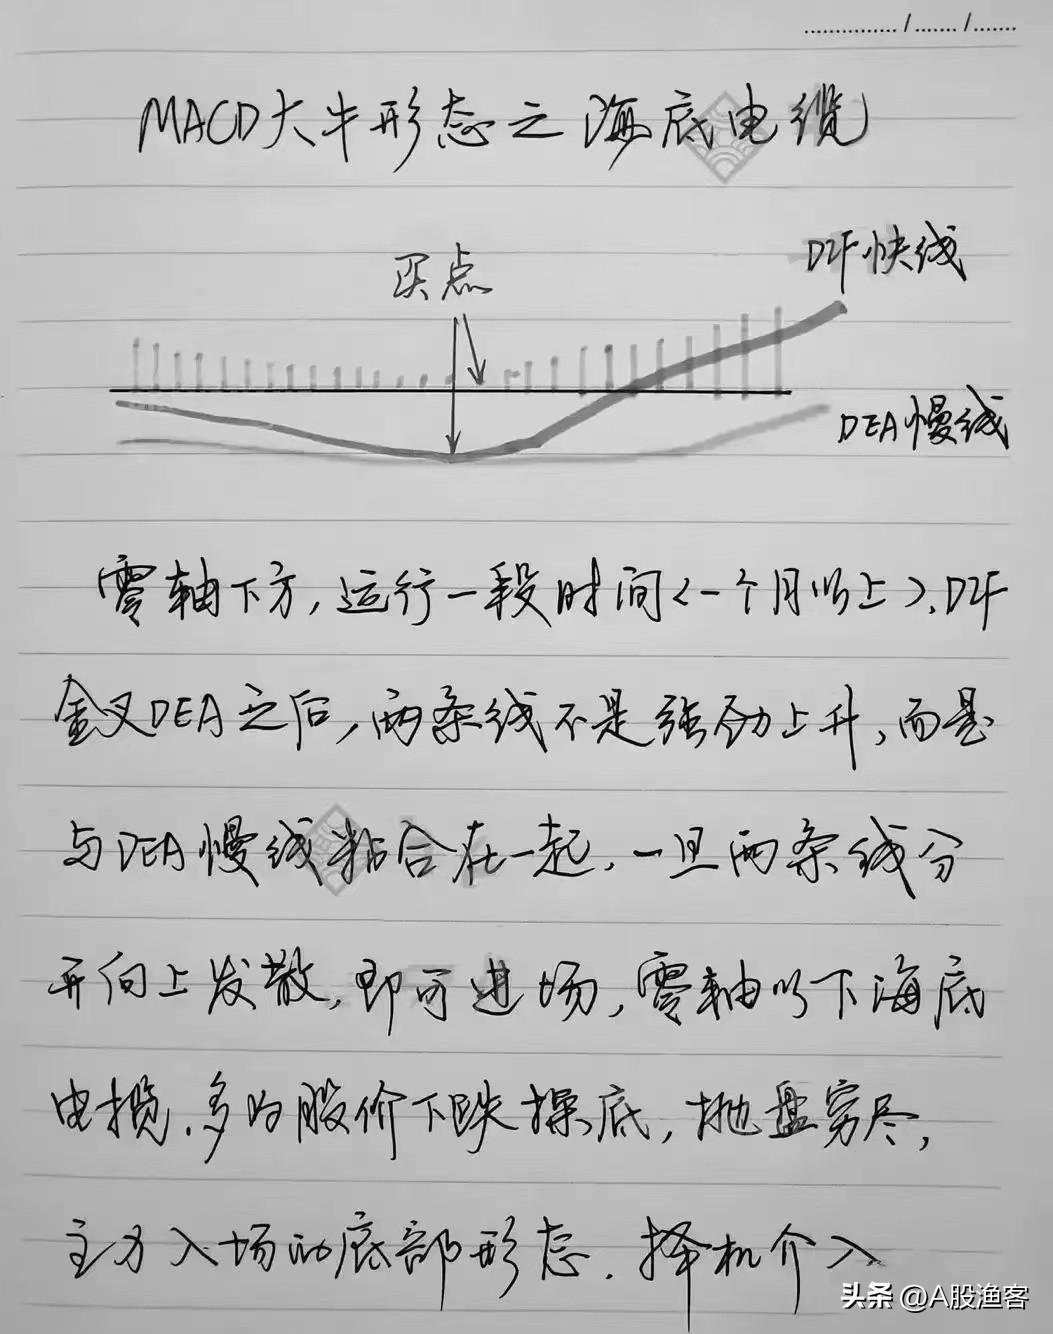 MACD大牛形态之海底电缆
DIF快线
买点
DEA慢线
零轴下方,运行一段时间<一个月以上>,DIF
金叉DEA之后,两条线不是强劲上升,而是
与DEA慢线粘合在一起,一旦两条线分
开向上发散,即可进场,零轴以下海底
电揽,多为股价下跌探底,抛盘穷尽,
主力入场的底部形态.择机介入
头条 @A股渔客